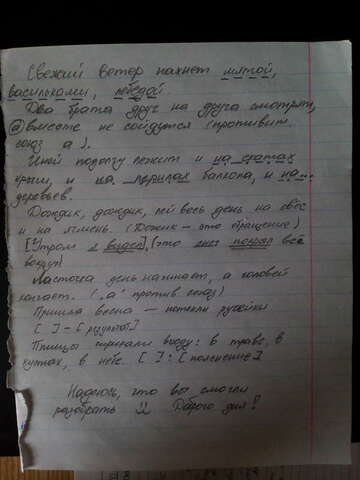 Свежий ветер пахнет мятой,
васильками, лебедой.
Два брата друг на друга смотрят,
а вместе не сойдутся (противит.
союз а).
Иней подолгу лежит и на скатах
крыш, и на перилах балкона, и на
деревьев.
Дождик, дождик, лей весь день на овёс
и на ячмень. (Дождик – это обращение)
[Утром я видел], (это снег покрыл всё
вокруг)
Ласточка день начинает, а соловей
кончает. (,а' против союз)
Пришла весна – потекли ручейки
[ ] – [результат]
Птицы скрипали всюду: в траве, в
кустах, в небе. [ ] : [пояснение]
Надеюсь, что вы смогли
разобрать !! Доброго дня!